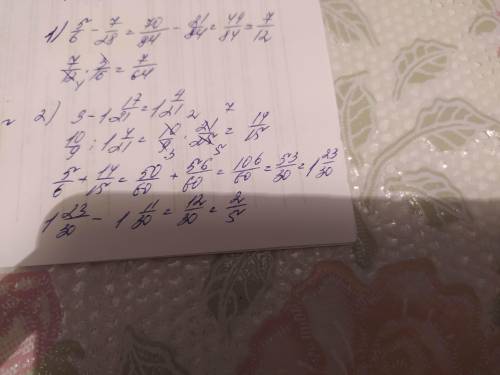 1) 5/6 - 7/28 = 70/84 - 21/84 = 49/84 = 7/12
7/12 : 3/16 = 7/64
2) 3 - 1 17/21 = 1 4/21
10/9 : 1 4/21 = 10/9 · 21/25 = 14/15
5/6 + 14/15 = 50/60 + 56/60 = 106/60 = 53/30 = 1 23/30
1 23/30 - 1 11/30 = 12/30 = 2/5